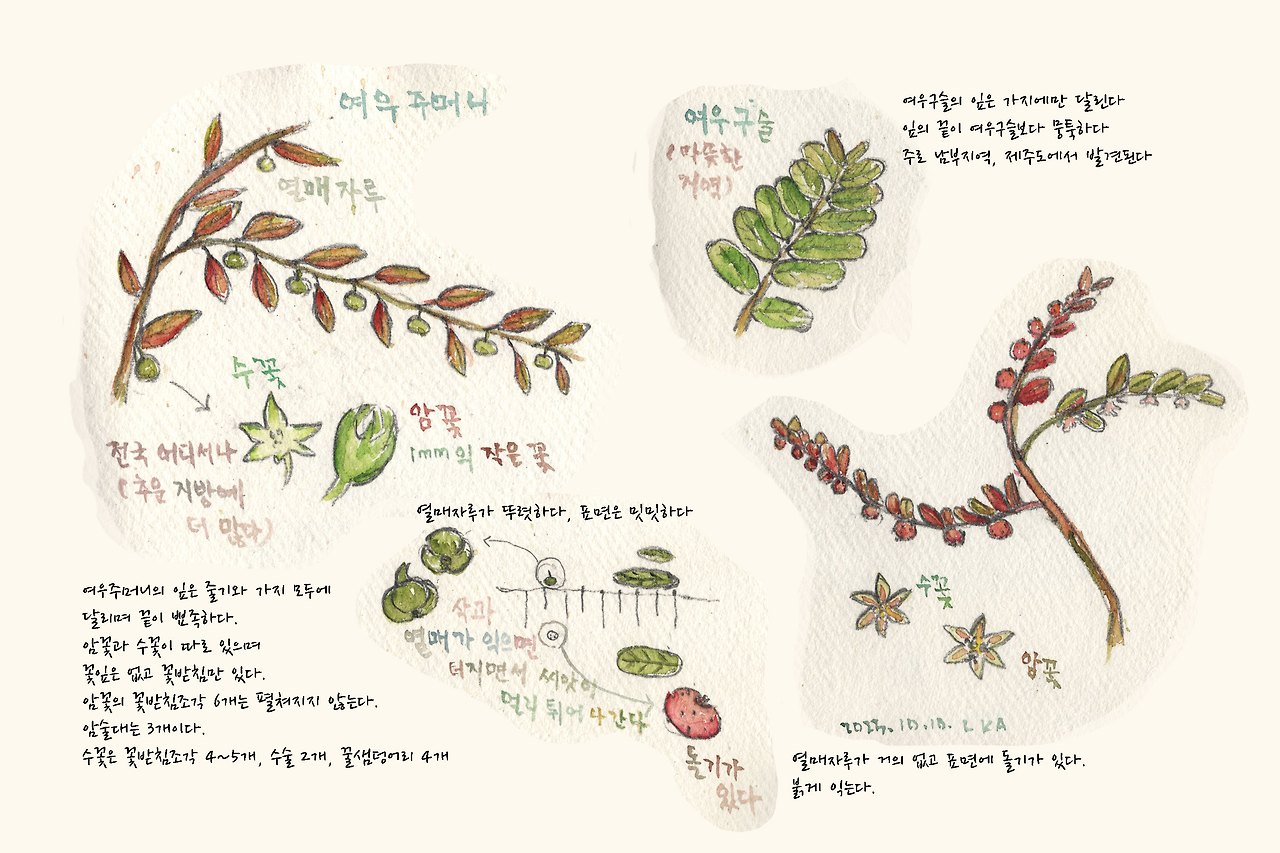 여우주머니
열매자루
수꽃
암꽃
1mm의 작은 꽃
전국 어디서나
(추운 지방에
더 많다)
여우주머니의 잎은 줄기와 가지 모두에
달리며 끝이 뾰족하다.
암꽃과 수꽃이 따로 있으며
꽃잎은 없고 꽃받침만 있다.
암꽃의 꽃받침조각 6개는 펼쳐지지 않는다.
암술대는 3개이다.
수꽃은 꽃받침조각 4~5개, 수술 2개, 꿀샘덩어리 4개
열매자루가 뚜렷하다, 표면은 밋밋하다
삭과
열매가 익으면
터지면서 씨앗이
멀리 튀어 나간다
돌기가
있다
여우구슬
(따뜻한
지역)
여우구슬의 잎은 가지에만 달린다
잎의 끝이 여우구슬보다 뭉툭하다
주로 남부지역, 제주도에서 발견된다
수꽃
암꽃
열매자루가 거의 없고 표면에 돌기가 있다.
붉게 익는다.